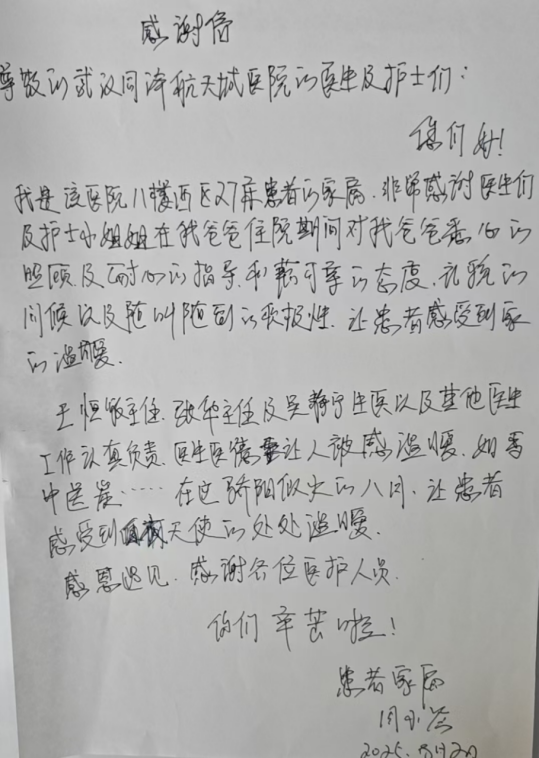 感谢信
尊敬的武汉同济航天城医院的医生及护士们：
你们好！
我是该医院八楼西区27床患者的家属，非常感谢医生们
及护士小姐姐在我爸爸住院期间对我爸爸悉心的
照顾及耐心的指导，和蔼可亲的态度，礼貌的
问候以及随叫随到的积极性，让患者感受到家
的温暖。
王恒主任，张华主任及吴静宇主医以及其他医生
工作认真负责，医生医德让人被感温暖，如雪
中送炭……在这骄阳似火的八月，让患者
感受到天使的处处温暖。
感恩遇见，感谢各位医护人员，
你们辛苦啦！
患者家属
2025.